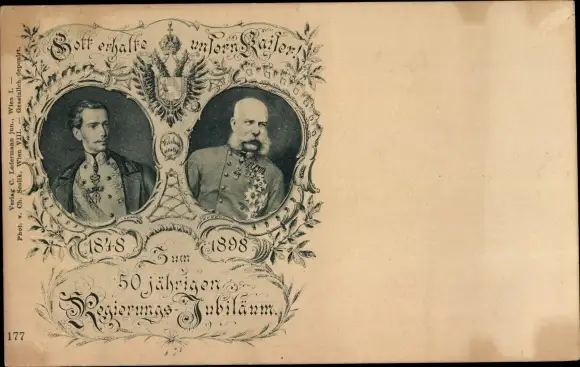 Gott erhalte unsern Kaiser!
1848 1898
Zum
50 jährigen
Regierungs-Jubiläum.
Verlag C. Ledermann jun., Wien I. —
Phot. v. Ch. Scolik, Wien VIII. — Gesetzlich deponirt.
177